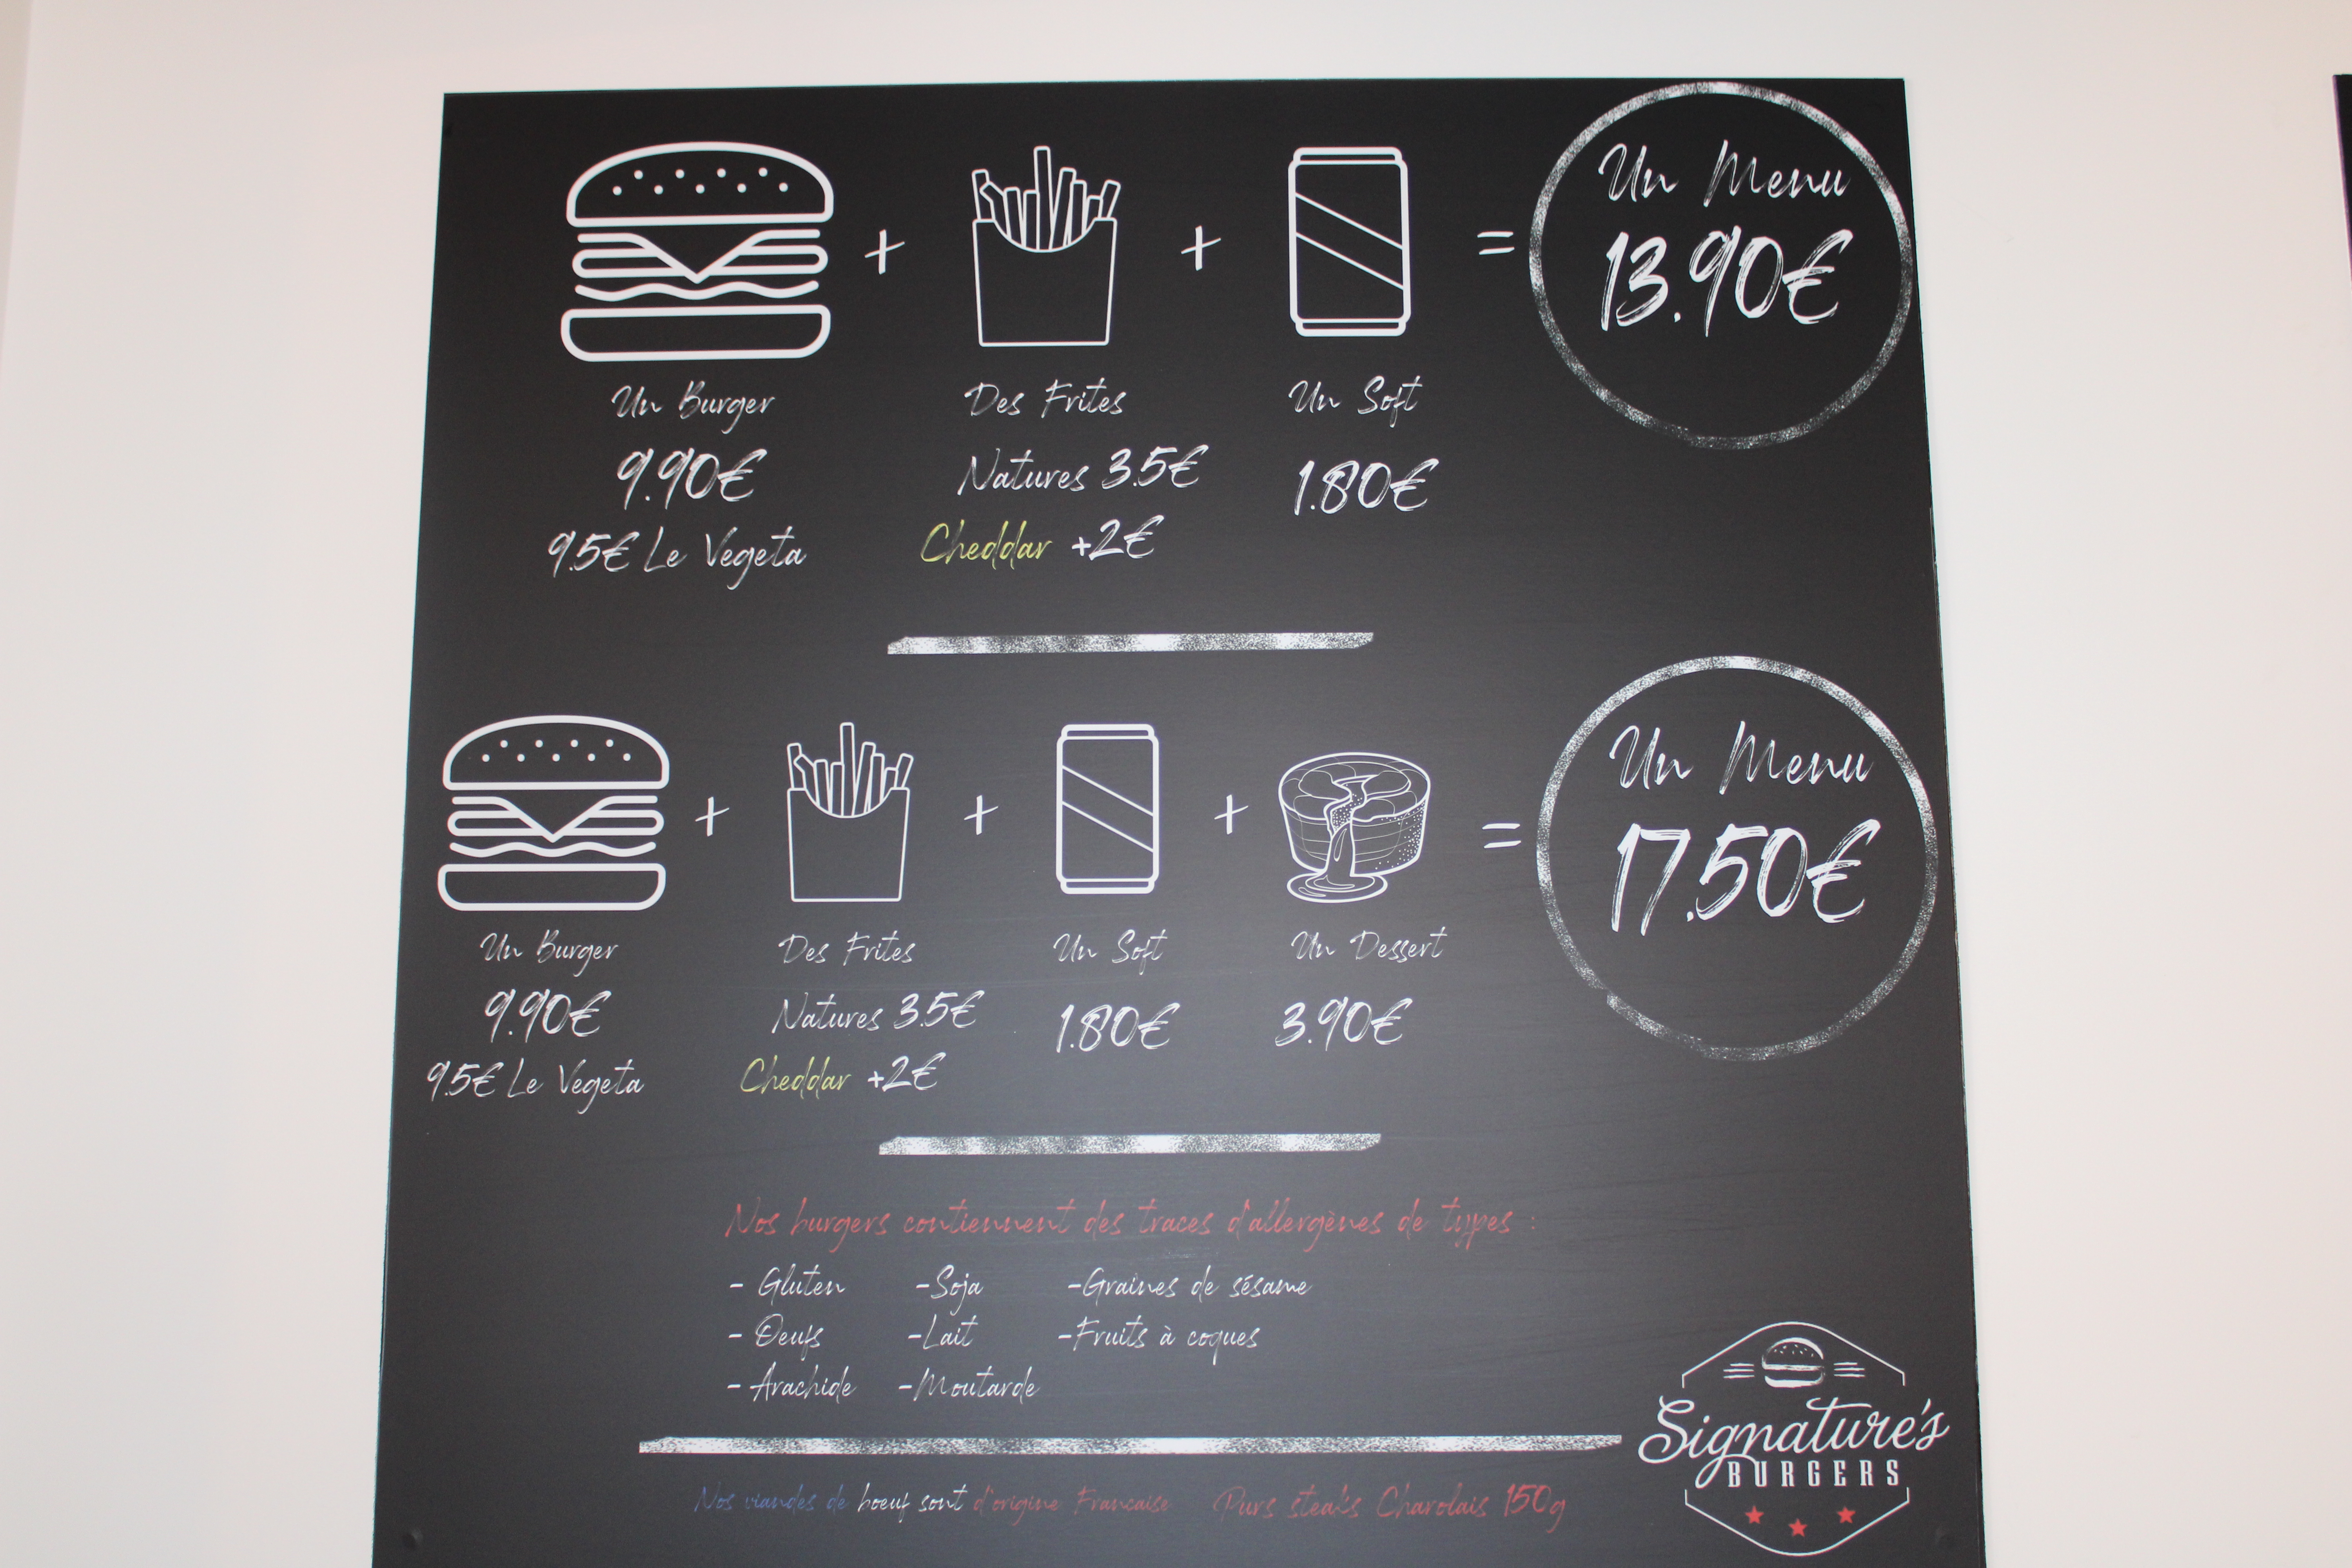 Un Menu
13.90€
+ + =
Un Burger Des Frites Un Soft
9.90€ Natures 3.5€ 1.80€
9.5€ Le Vegeta Cheddar +2€
Un Menu
17.50€
+ + + =
Un Burger Des Frites Un Soft Un Dessert
9.90€ Natures 3.5€ 1.80€ 3.90€
9.5€ Le Vegeta Cheddar +2€
Nos burgers contiennent des traces d'allergènes de types :
- Gluten -Soja -Graines de sésame
- Oeufs -Lait -Fruits à coques
- Arachide -Moutarde
Signature's
BURGERS
Nos viandes de boeuf sont d'origine Francaise Purs steaks Charolais 150g